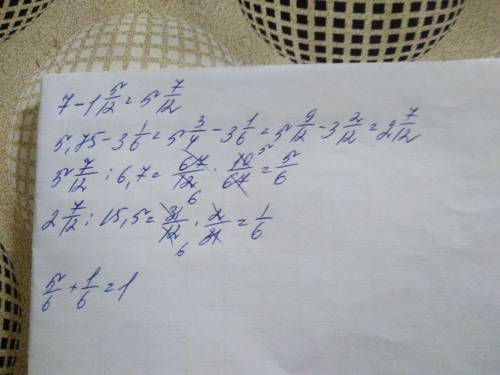 7 - 1 5/12 = 5 7/12
5,75 - 3 1/6 = 5 3/4 - 3 1/6 = 5 9/12 - 3 2/12 = 2 7/12
5 7/12 : 6,7 = 67/12 6 · 10 5/67 = 5/6
2 7/12 : 15,5 = 31/12 6 · 2/31 = 1/6
5/6 + 1/6 = 1